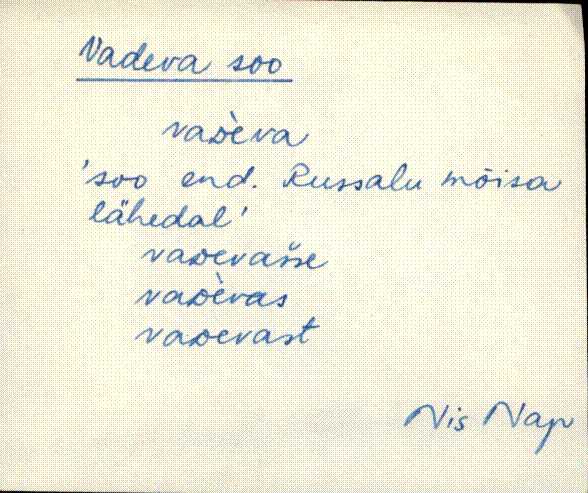 Vadeva soo
vaᴅèva
'soo end. Russalu mõisa
lähedal'
vaᴅevašse
vaᴅèvas
vaᴅevast
Nis Nap